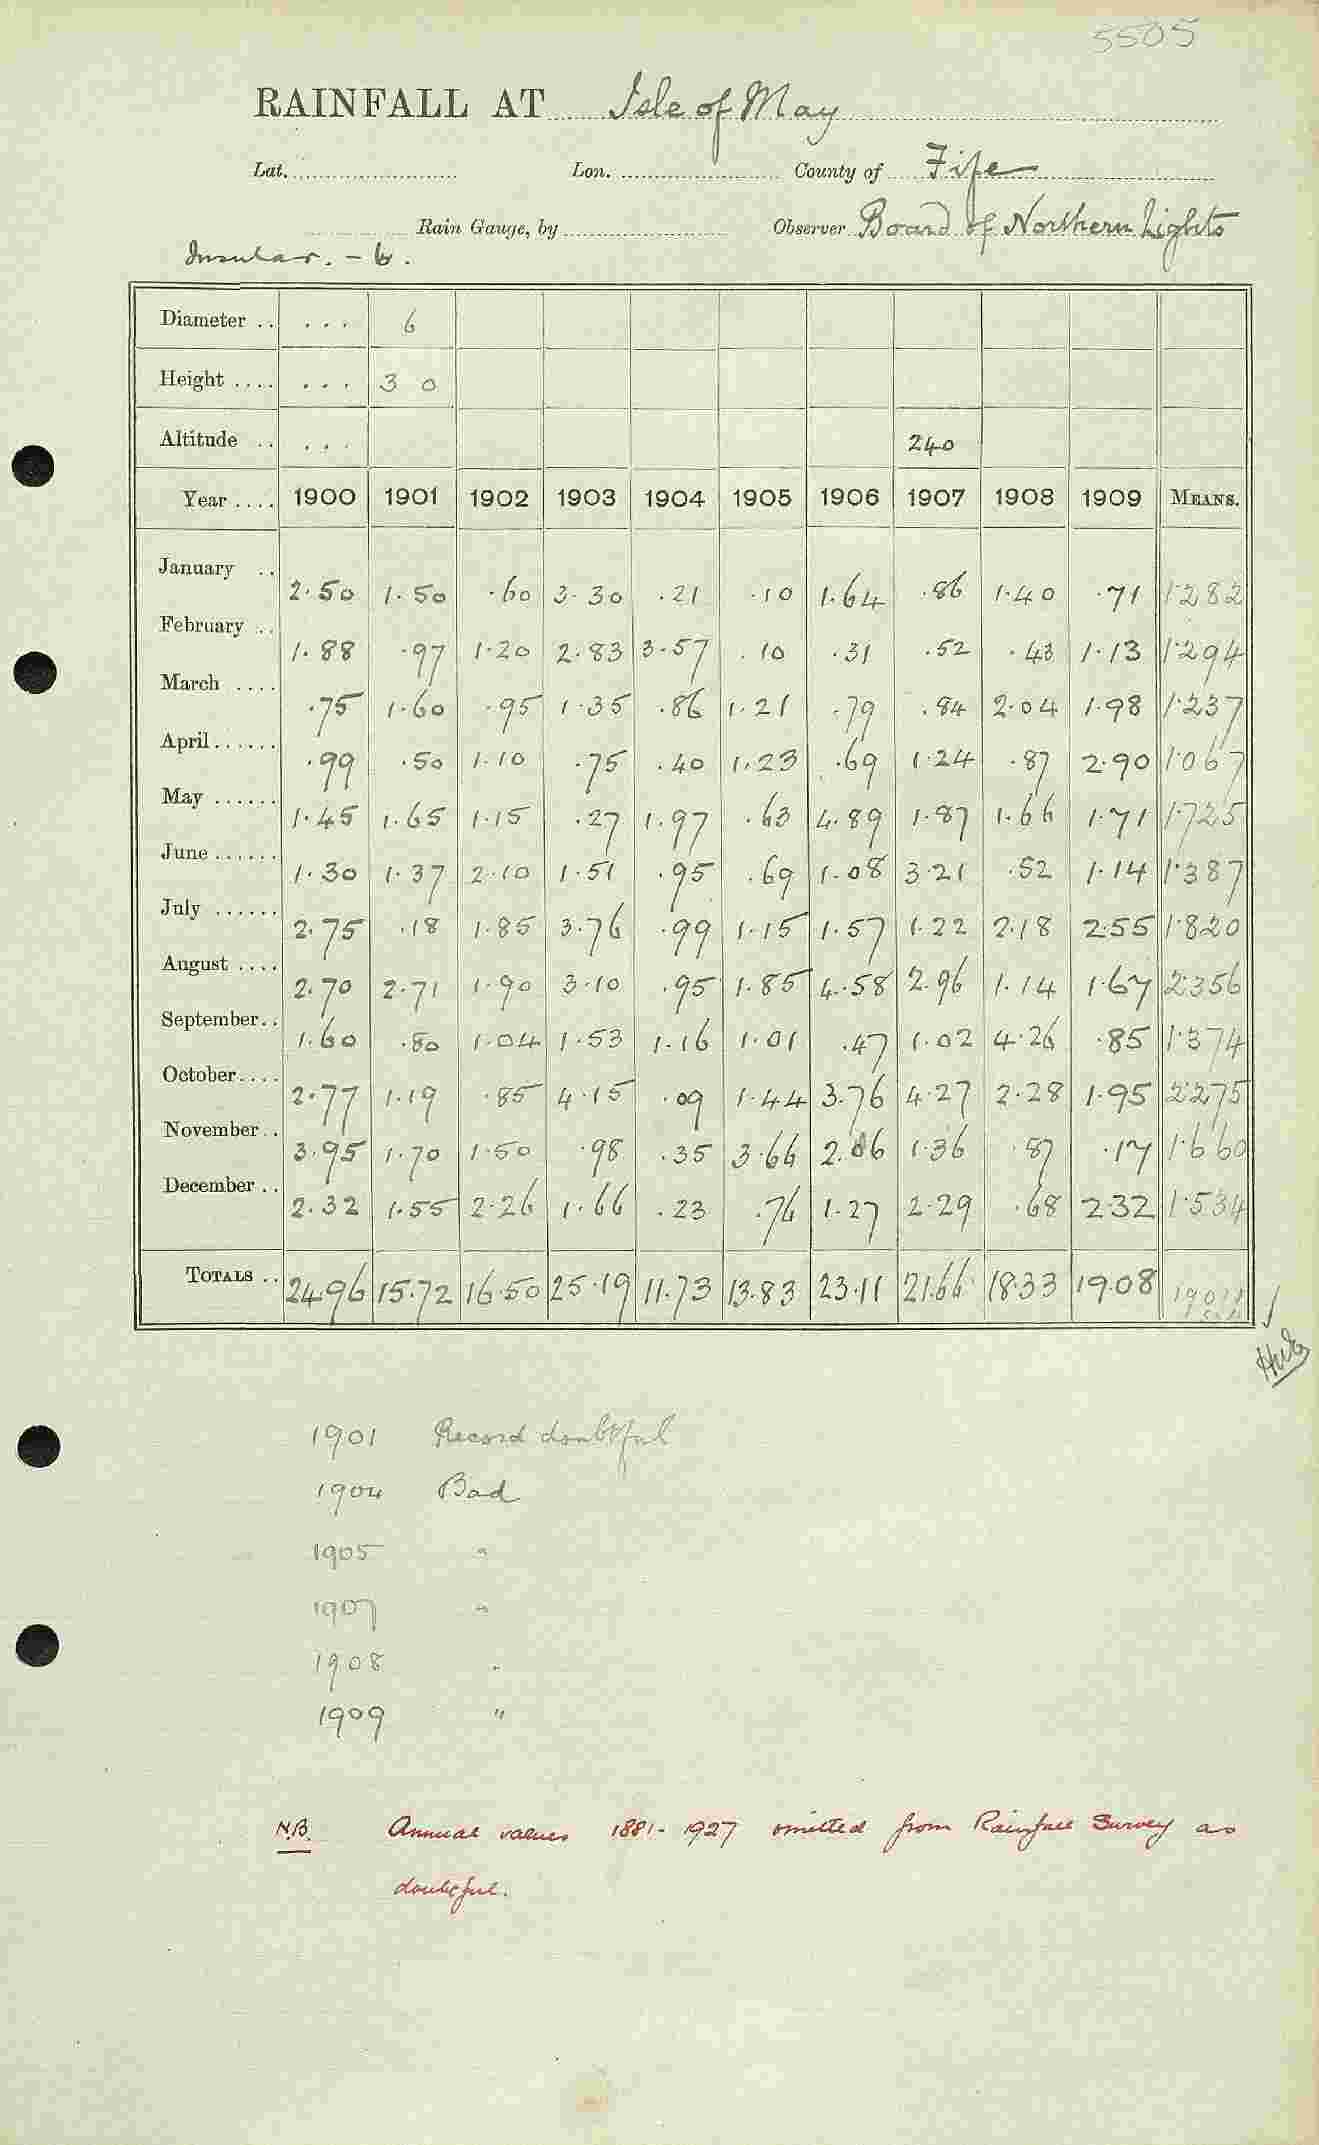 5505
RAINFALL AT Isle of May
Lat. Lon. County of Fife
Rain Gauge, by Observer Board of Northern Lights
Insular. - 6.
Diameter .. ... 6
Height .... ... 3 0
Altitude .. ... 240
Year .... 1900 1901 1902 1903 1904 1905 1906 1907 1908 1909 MEANS.
January .. 2.50 1.50 .60 3.30 .21 .10 1.64 .86 1.40 .71 1.282
February .. 1.88 .97 1.20 2.83 3.57 .10 .31 .52 .43 1.13 1.294
March .... .75 1.60 .95 1.35 .86 1.21 .79 .84 2.04 1.98 1.237
April ...... .99 .50 1.10 .75 .40 1.23 .69 1.24 .87 2.90 1.067
May ...... 1.45 1.65 1.15 .27 1.97 .63 4.89 1.87 1.66 1.71 1.725
June ...... 1.30 1.37 2.10 1.51 .95 .69 1.08 3.21 .52 1.14 1.387
July ...... 2.75 .18 1.85 3.76 .99 1.15 1.57 1.22 2.18 2.55 1.820
August .... 2.70 2.71 1.90 3.10 .95 1.85 4.58 2.96 1.14 1.67 2.356
September .. 1.60 .80 1.04 1.53 1.16 1.01 .47 1.02 4.26 .85 1.374
October .... 2.77 1.19 .85 4.15 .09 1.44 3.76 4.27 2.28 1.95 2.275
November .. 3.95 1.70 1.50 .98 .35 3.66 2.06 1.36 .87 .17 1.660
December .. 2.32 1.55 2.26 1.66 .23 .76 1.27 2.29 .68 2.32 1.534
TOTALS .. 24.96 15.72 16.50 25.19 11.73 13.83 23.11 21.66 18.33 19.08
1901 Record doubtful
1904 Bad
1905 "
1907 "
1908 "
1909 "
N.B. Annual values 1881-1927 omitted from Rainfall Survey as
doubtful.